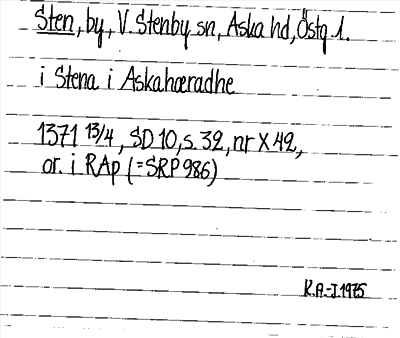 Sten, by, V. Stenby sn, Aska hd, Östg l.
i Stena i Askahæradhe
1371 13/4, SD 10, s. 32, nr X 42,
or. i RAp (=SRP 986)
R.A.-J. 1975